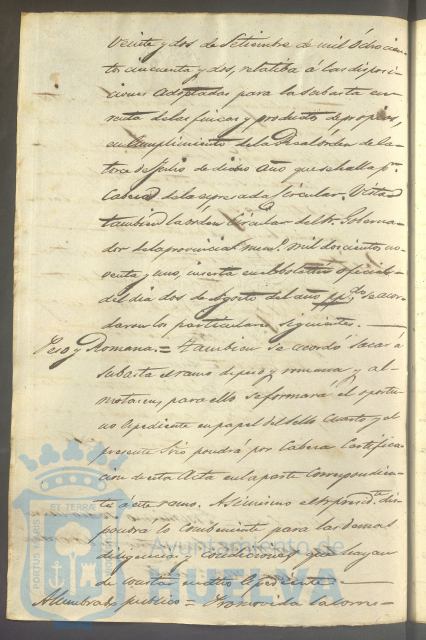 Veinte y dos de Setiembre de mil ochocien-
tos cincuenta y dos, relatiba á las disposi-
ciones adoptadas para la subasta en
renta de las fincas y productos de propios,
en cumplimiento de la Real órden de ca-
torce de Julio de dicho año que se halla pr.
Cabeza de la espresada Circular. Vista
tambien la órden circular del Sr. Goberna-
dor de la provincia numo. mil doscientos no-
venta y uno, inserta en el boletin oficial
del dia dos de Agosto del año se acor-
daron los particulares siguientes.
Peso y Romana. = Tambien se acordó sacar á
subasta el ramo de peso y romana y al-
motacen, para ello se formará el oportu-
no Espediente en papel del sello Cuarto y el
presente Srio pondrá por Cabeza Certifica-
cion de esta Acta en la parte Correspondien-
te á este ramo. Asimismo el Sr. presidte. dis-
pondrá lo conbeniente para las demas
diligencias y condiciones que hayan
de constar en dicho Espediente.
Alumbrado publico = Promovida la
PORTUS MARIS ET TERRÆ
Ayuntamiento de
HUELVA